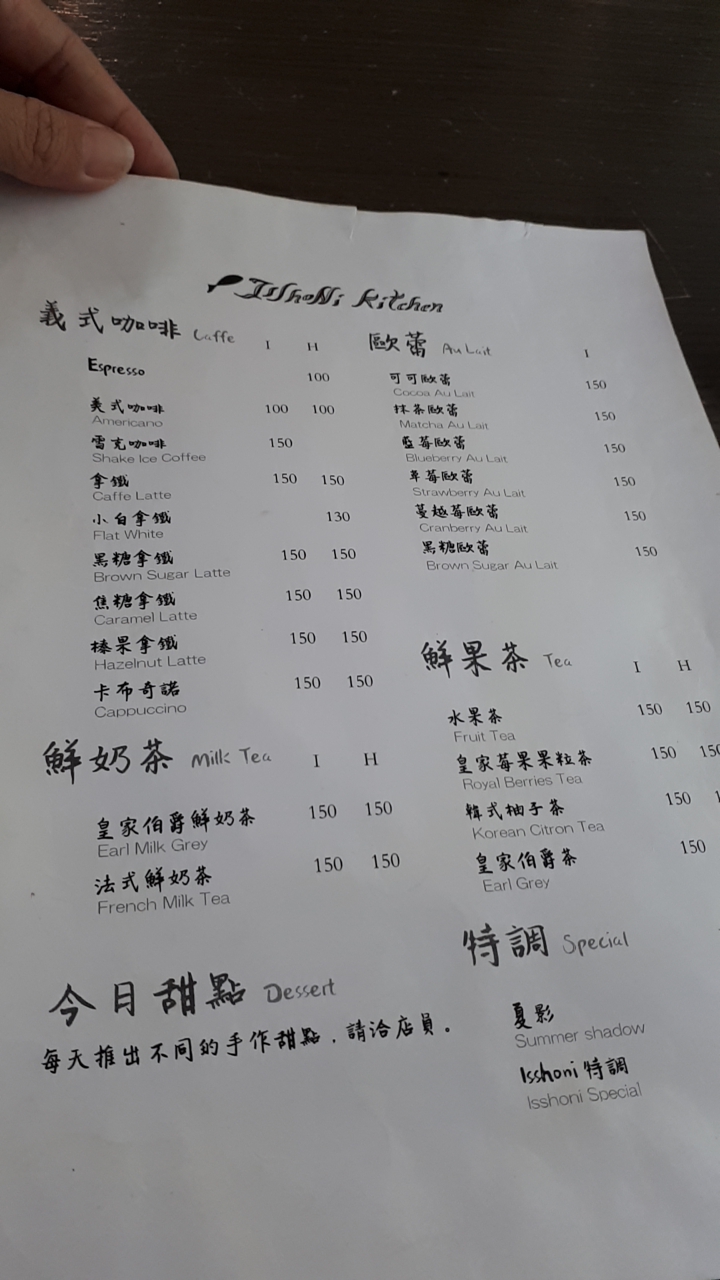 IsshoNi Kitchen
義式咖啡 Caffe I H
Espresso 100
美式咖啡 100 100
Americano
雪克咖啡 150
Shake Ice Coffee
拿鐵 150 150
Caffe Latte
小白拿鐵 130
Flat White
黑糖拿鐵 150 150
Brown Sugar Latte
焦糖拿鐵 150 150
Caramel Latte
榛果拿鐵 150 150
Hazelnut Latte
卡布奇諾 150 150
Cappuccino
鮮奶茶 Milk Tea I H
皇家伯爵鮮奶茶 150 150
Earl Milk Grey
法式鮮奶茶 150 150
French Milk Tea
今日甜點 Dessert
每天推出不同的手作甜點，請洽店員。
歐蕾 Au Lait I
可可歐蕾 150
Cocoa Au Lait
抹茶歐蕾 150
Matcha Au Lait
藍莓歐蕾 150
Blueberry Au Lait
草莓歐蕾 150
Strawberry Au Lait
蔓越莓歐蕾 150
Cranberry Au Lait
黑糖歐蕾 150
Brown Sugar Au Lait
鮮果茶 Tea I H
水果茶 150 150
Fruit Tea
皇家莓果果粒茶 150
Royal Berries Tea
韓式柚子茶 150
Korean Citron Tea
皇家伯爵茶 150
Earl Grey
特調 Special
夏影
Summer shadow
Isshoni 特調
Isshoni Special